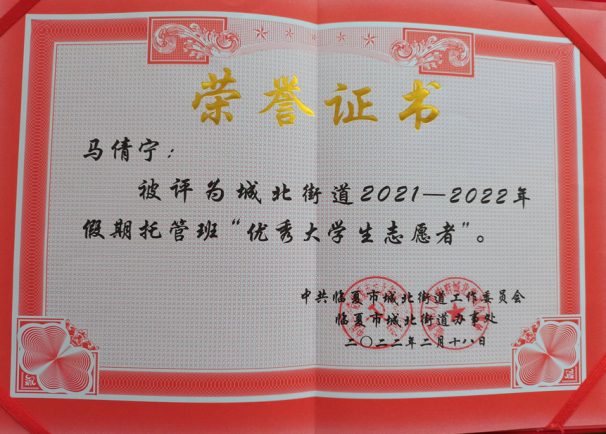 荣誉证书
马倩宁：
被评为城北街道2021—2022年
假期托管班“优秀大学生志愿者”。
中共临夏市城北街道工作委员会
临夏市城北街道办事处
二〇二二年二月十八日